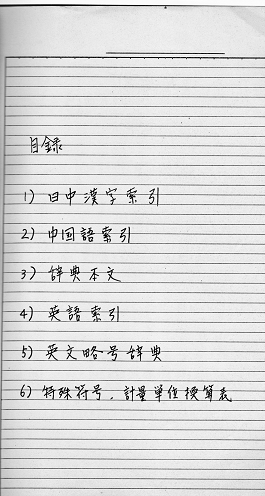 目録
1) 日中漢字索引
2) 中国語索引
3) 辞典本文
4) 英語索引
5) 英文略号辞典
6) 特殊符号，計量単位換算表